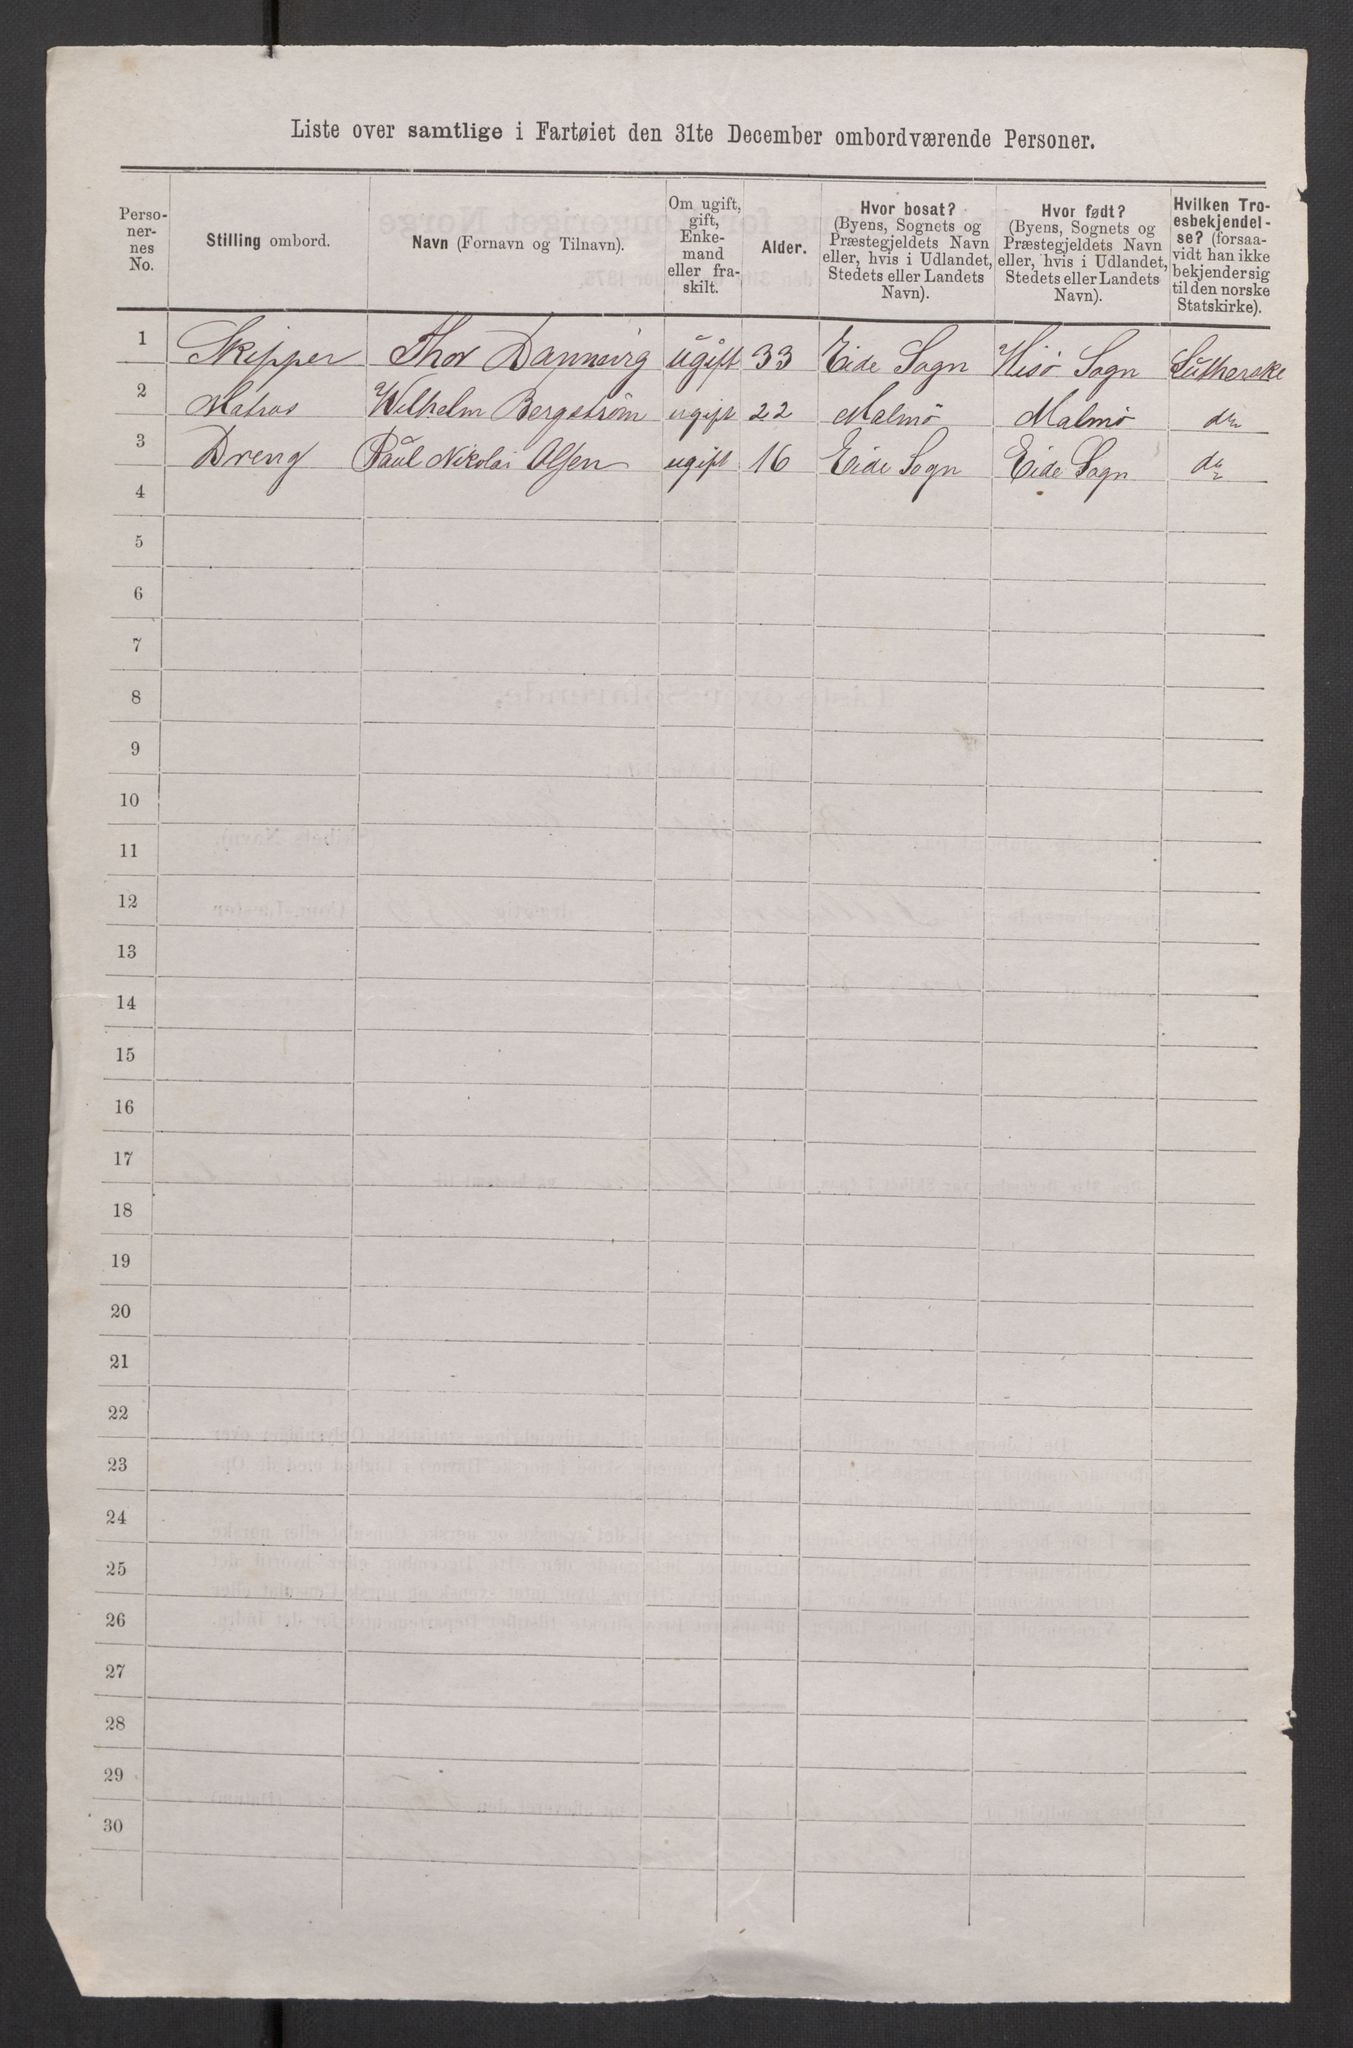 Liste over samtlige i Fartøiet den 31te December ombordværende Personer.
Perso-
ner-
nes
No.
Stilling ombord.
Navn (Fornavn og Tilnavn).
Om ugift,
gift,
Enke-
mand
eller fra-
skilt.
Alder.
Hvor bosat?
(Byens, Sognets og
Præstegjeldets Navn
eller, hvis i Udlandet,
Stedets eller Landets
Navn).
Hvor født?
(Byens, Sognets og
Præstegjeldets Navn
eller, hvis i Udlandet,
Stedets eller Landets
Navn).
Hvilken Tro-
esbekjendel-
se? (forsaa-
vidt han ikke
bekjender sig
til den norske
Statskirke).
1 Skipper Thor Dannevig ugift 33 Eide Sogn Hisø Sogn Lutherske
2 Matros Wilhelm Bergström ugift 22 Malmö Malmö do
3 Dreng Paul Nikolai Olsen ugift 16 Eide Sogn Eide Sogn do
4
5
6
7
8
9
10
11
12
13
14
15
16
17
18
19
20
21
22
23
24
25
26
27
28
29
30